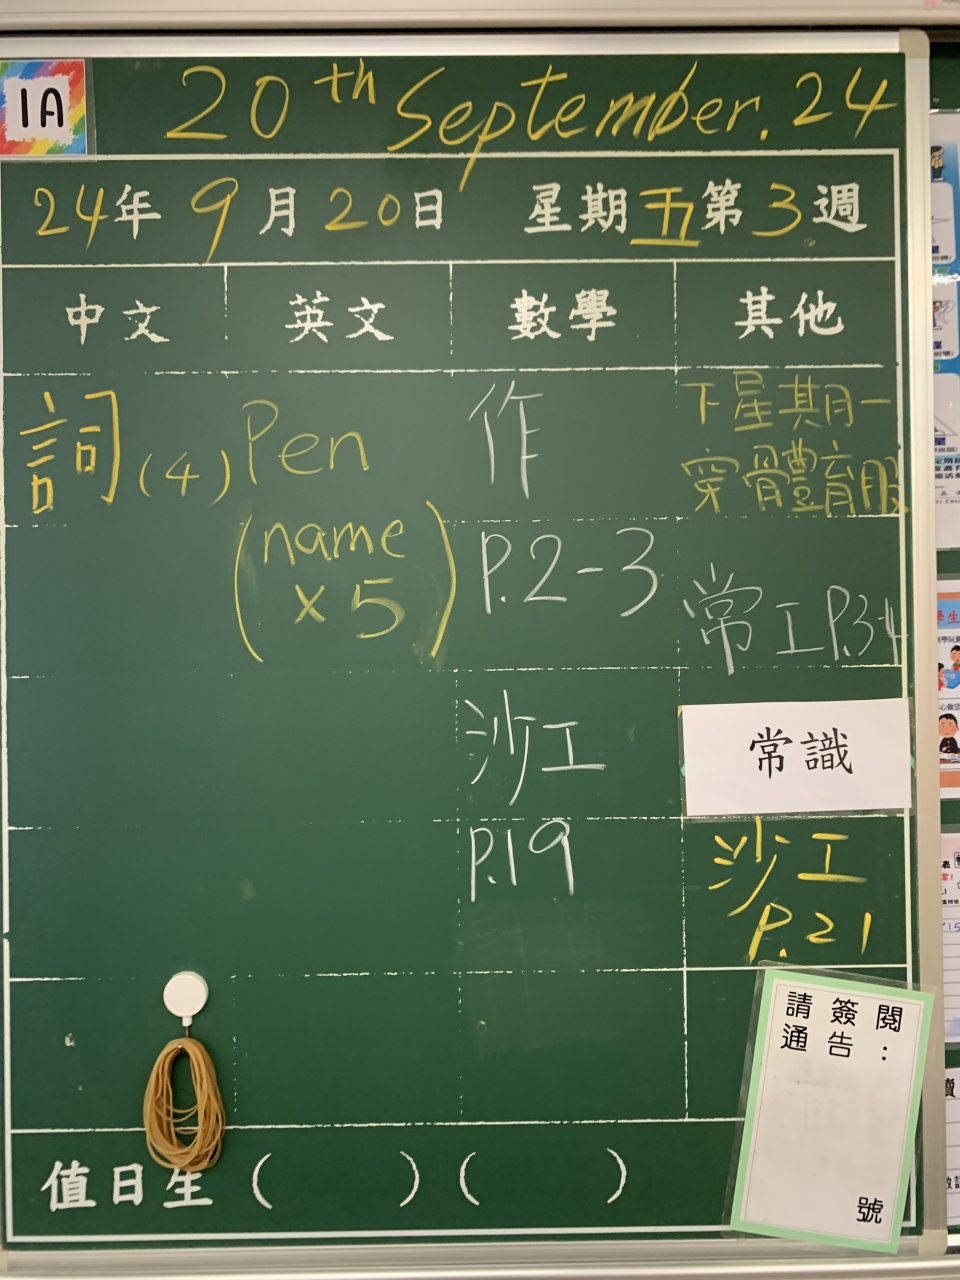 1A
20th September. 24
24年9月20日 星期五第3週
中文 英文 數學 其他
詞(4)
Pen
(name
×5)
作
P.2-3
沙工
P.19
下星期一
穿體育服
常工P.3-4
常識
沙工
P.21
請簽閱
通告:
號
值日生( )( )